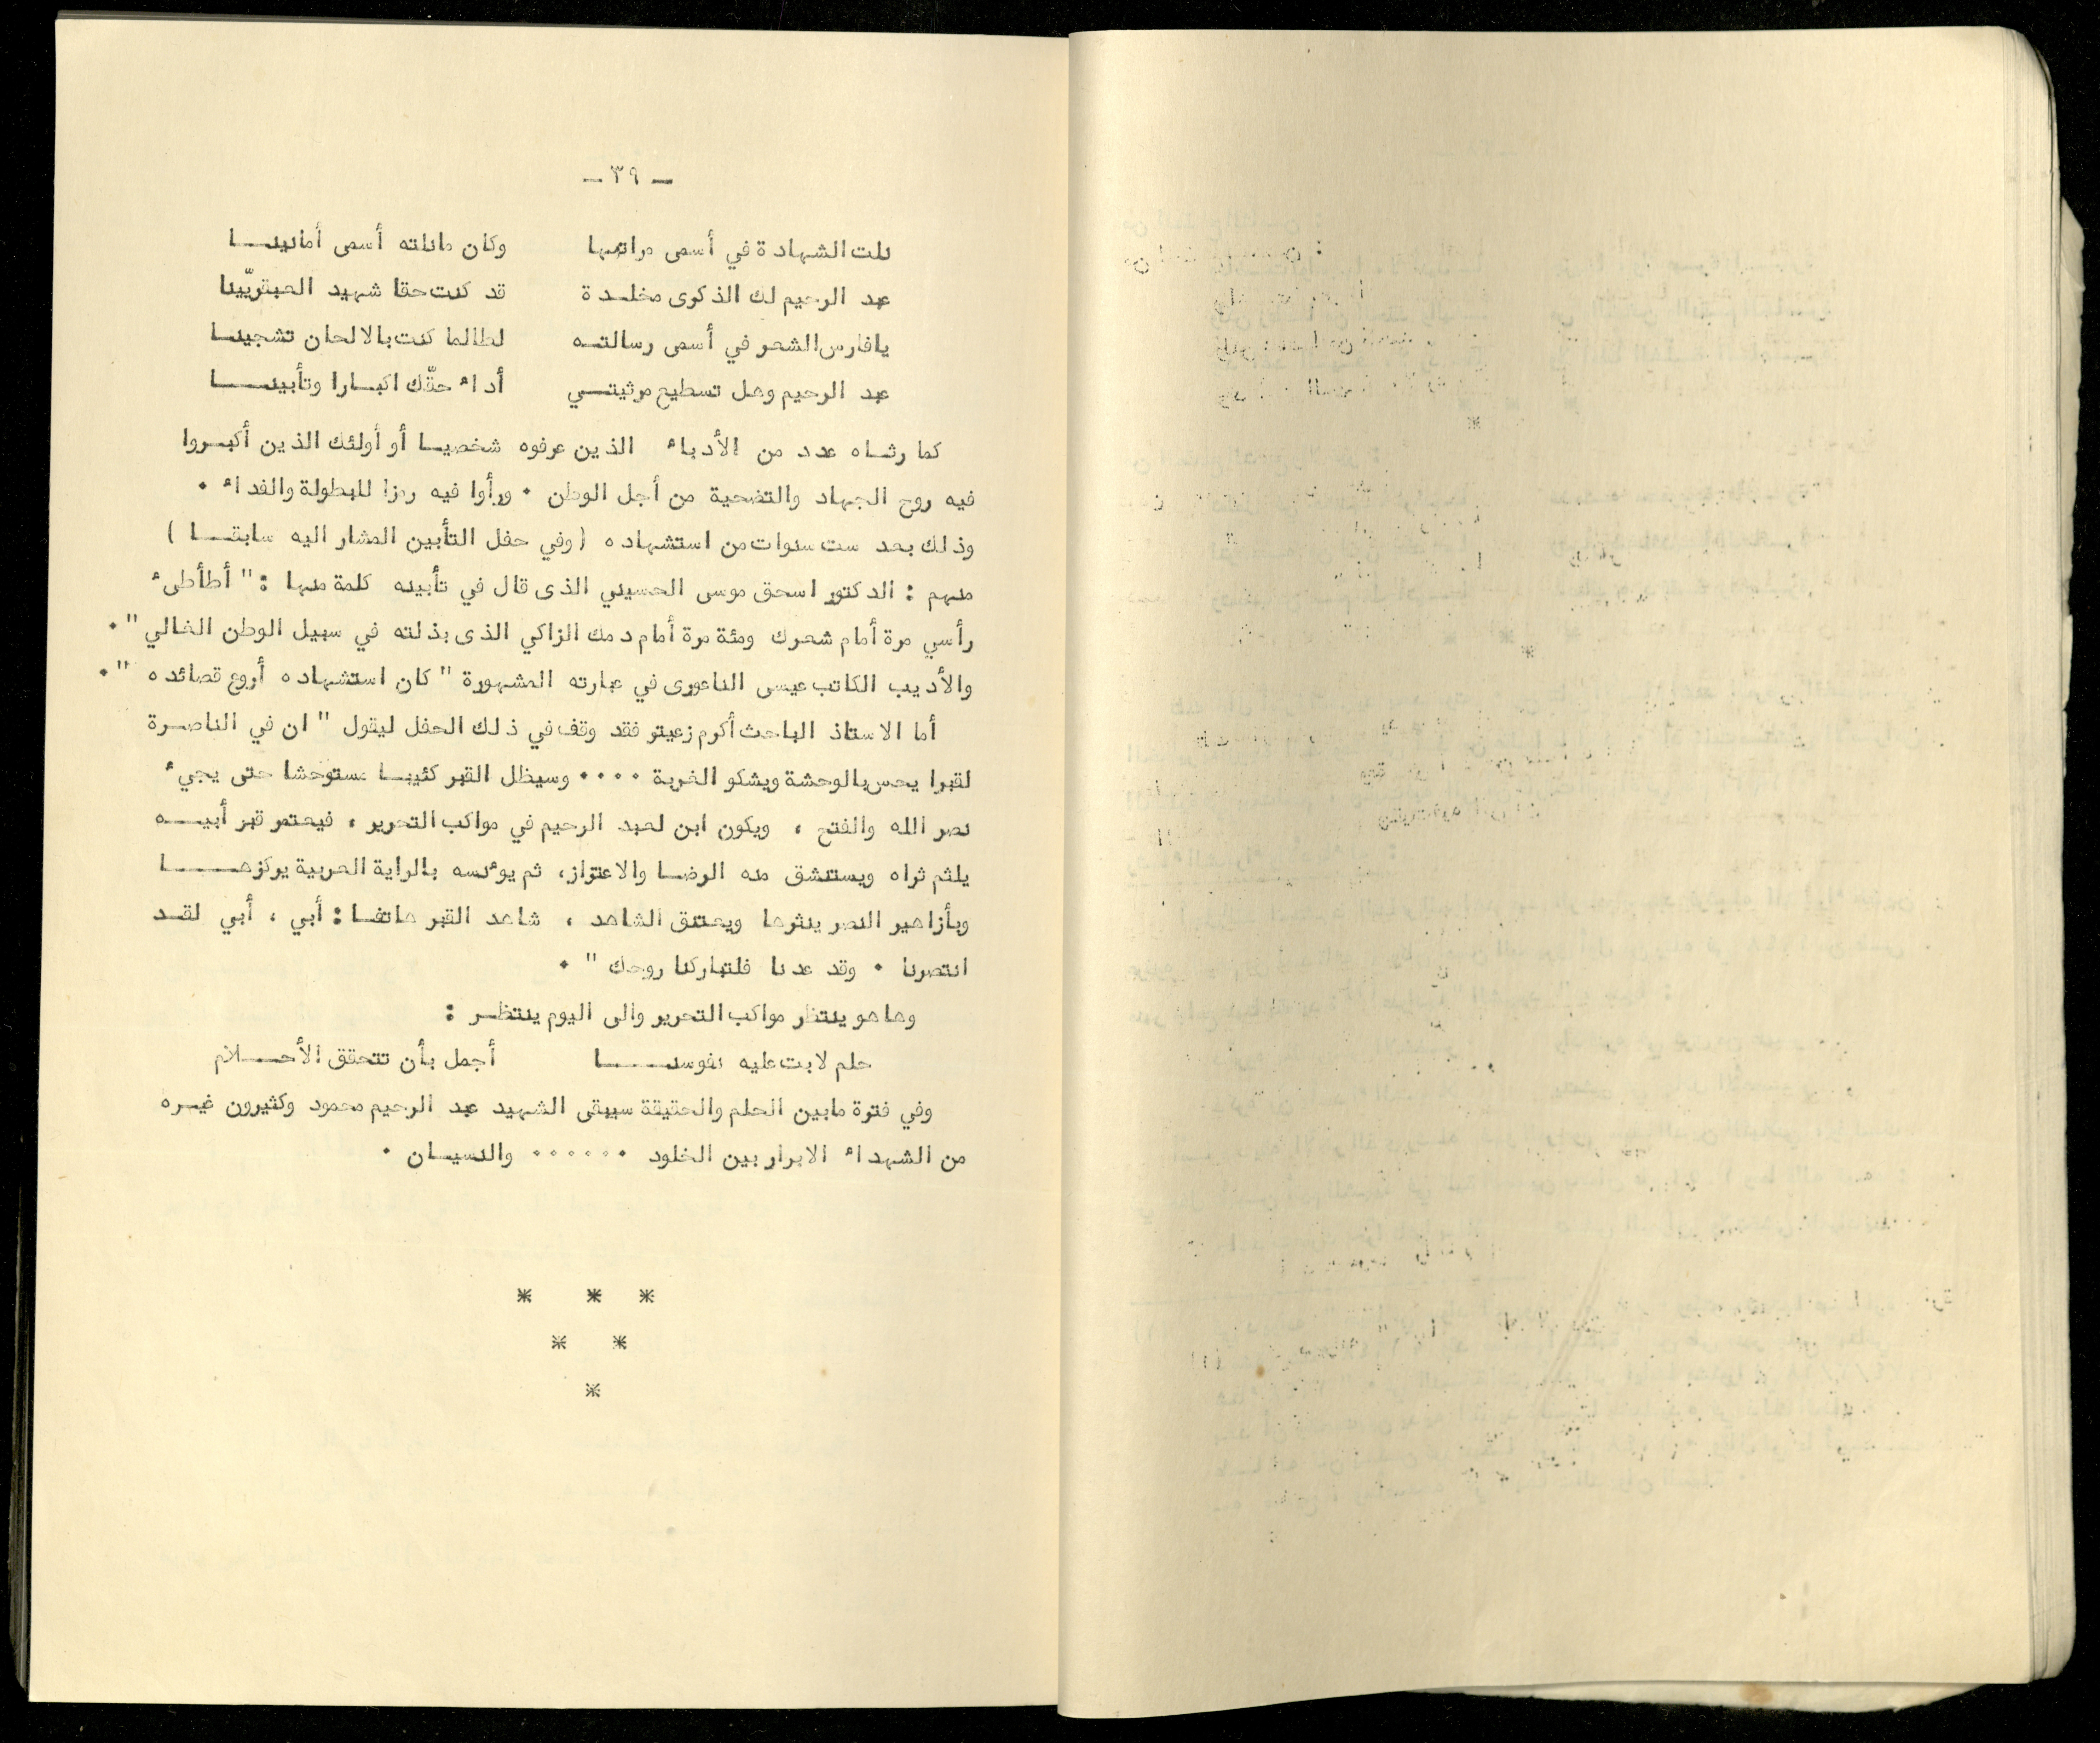 ـ ٣٩ ـ
نلت الشهادة في أسمى مراتبها وكان مانلته أسمى أمانينــا
عبد الرحيم لك الذكرى مخلـدة قد كنت حقا شهيد العبقريّينا
يافارس الشعر في أسمى رسالتـه لطالما كنت بالالحان تشجينـا
عبد الرحيم وهـل تسطيع مرثيتــي أداء حقّك اكبـارا وتأبينـــا
كما رثـاه عدد من الأدباء الذين عرفوه شخصيـا أو أولئك الذين أكبـروا
فيه روح الجهاد والتضحية من أجل الوطن ٠ ورأوا فيه رمزا للبطولة والفداء ٠
وذلك بعد ست سنوات من استشهاده (وفي حفل التأبين المشار اليه سابقــا )
منهم : الدكتور اسحق موسى الحسيني الذى قال في تأبينه كلمة منها : " أطأطىء
رأسي مرة أمام شعرك ومئة مرة أمام دمك الزاكي الذى بذلته في سبيل الوطن الغالي " ٠
والأديب الكاتب عيسى الناعورى في عبارته المشهورة " كان استشهاده أروع قصائده " ٠
أما الاستاذ الباحث أكرم زعيتر فقد وقف في ذلك الحفل ليقول " ان في الناصـرة
لقبرا يحس بالوحشة ويشكو الغربة ٠٠٠٠ وسيظل القبر كئيبـا مستوحشا حتى يجيء
نصر الله والفتح ، ويكون ابن لعبد الرحيم في مواكب التحرير ، فيعتمر قبر أبيــه
يلثم ثراه ويستنشق منه الرضـا والاعتزاز، ثم يوءنسه بالراية العربية يركزهــــا
وبأزاهير النصر ينثرها ويعتنق الشاهد ، شاهد القبر هاتفـا : أبي ، أبي لقـد
انتصرنا ٠ وقد عدنا فلتباركنا روحك " ٠
وهاهو ينتظر مواكب التحرير والى اليوم ينتظـر :
حلم لابت عليه نفوسنـــــا أجمل بأن تتحقق الأحــلام
وفي فترة مابين الحلم والحقيقة سيبقى الشهيد عبد الرحيم محمود وكثيرون غيـره
من الشهداء الابرار بين الخلود ٠٠٠٠٠٠ والنسيـان ٠
* * *
* *
*